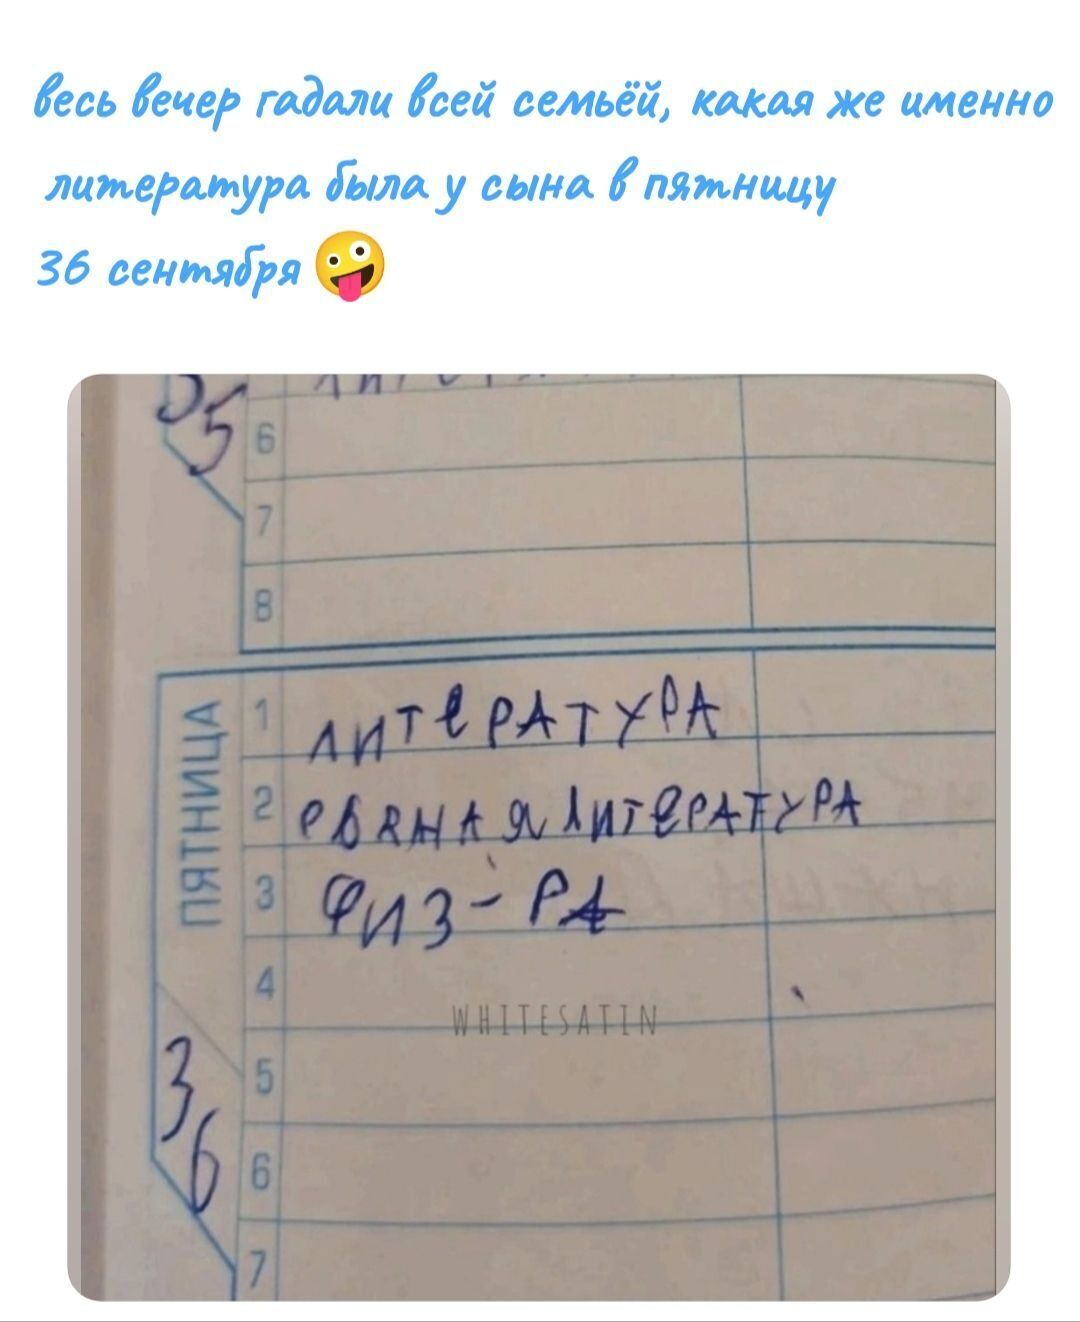 весь вечер гадали всей семьёй, какая же именно
литература была у сына в пятницу
36 сентября 🤪
35
6
7
8
ПЯТНИЦА
1 ЛИТЕРАТУРА
2 ЛИТЕРАТУРА
3 ФИЗ-РА
4
WHITESATIN
5
36
6
7